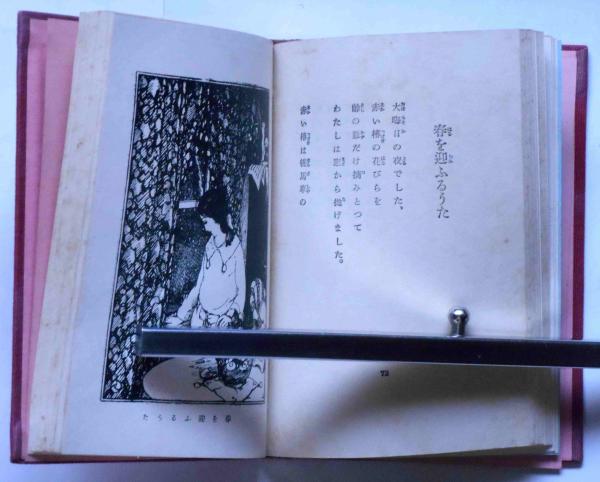 春を迎ふるうた
大晦日の夜でした、
赤い椿の花びらを
齢の数だけ摘みとつて
わたしは窓から抛げました。
赤い椿は乗馬鞭の
73
春を迎ふるうた